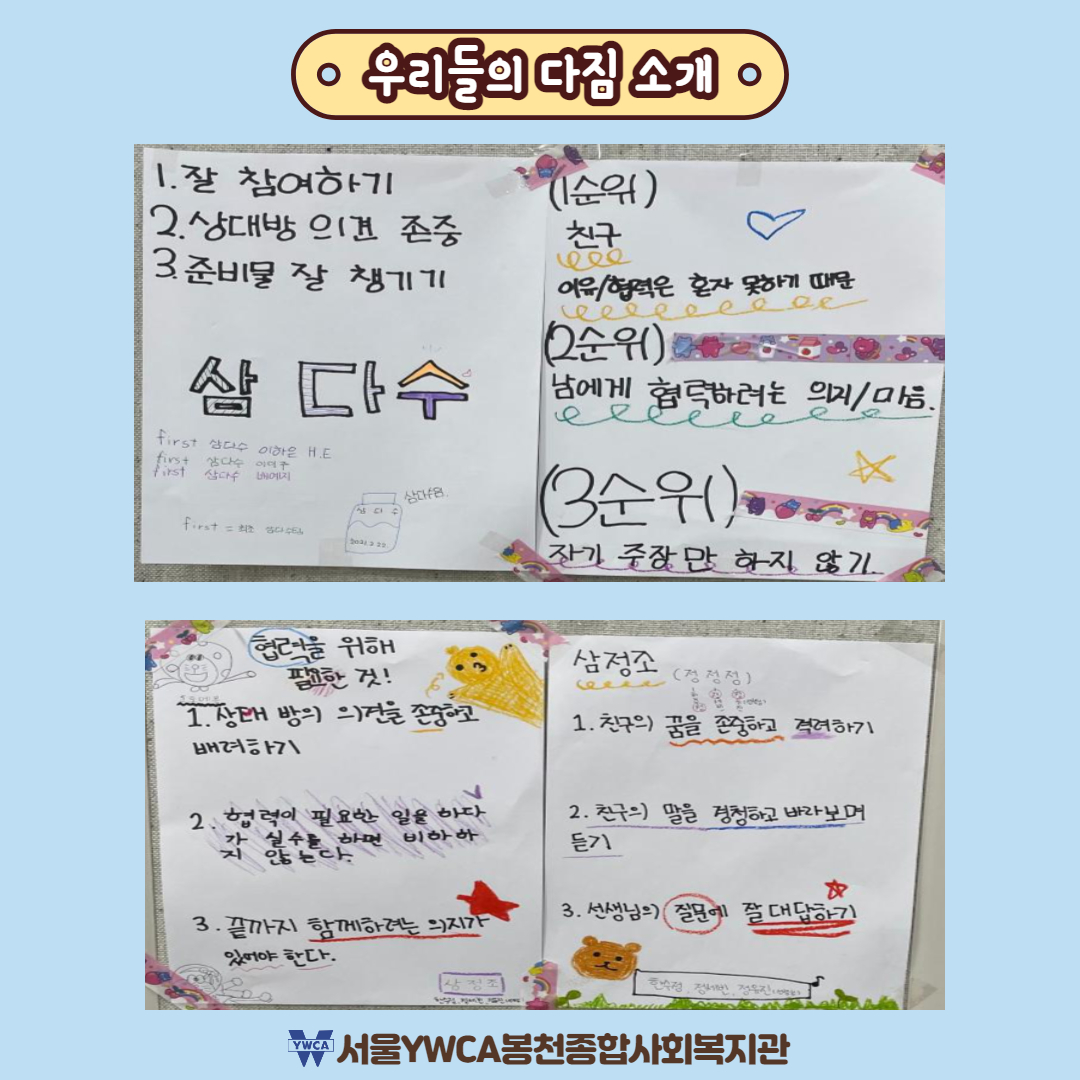 우리들의 다짐 소개
1. 잘 참여하기
2. 상대방 의견 존중
3. 준비물 잘 챙기기
삼 다 수
first 삼다수 이하은 H.E
first 삼다수
first 삼다수 배예지
first = 최초
삼다수
2021.2.22
(1순위)
친구
이유/협력은 혼자 못하기 때문
(2순위)
남에게 협력하려는 의지/마음.
(3순위)
자기 주장만 하지 않기.
협력을 위해
필요한 것!
1. 상대방의 의견을 존중하고
배려하기
2. 협력이 필요한 일을 하다
가 실수를 하면 비하하
지 않는다.
3. 끝까지 함께하려는 의지가
있어야 한다.
삼정조
삼정조
(정정정)
1. 친구의 꿈을 존중하고 격려하기
2. 친구의 말을 경청하고 바라보며
듣기
3. 선생님의 질문에 잘 대답하기
YWCA 서울YWCA봉천종합사회복지관